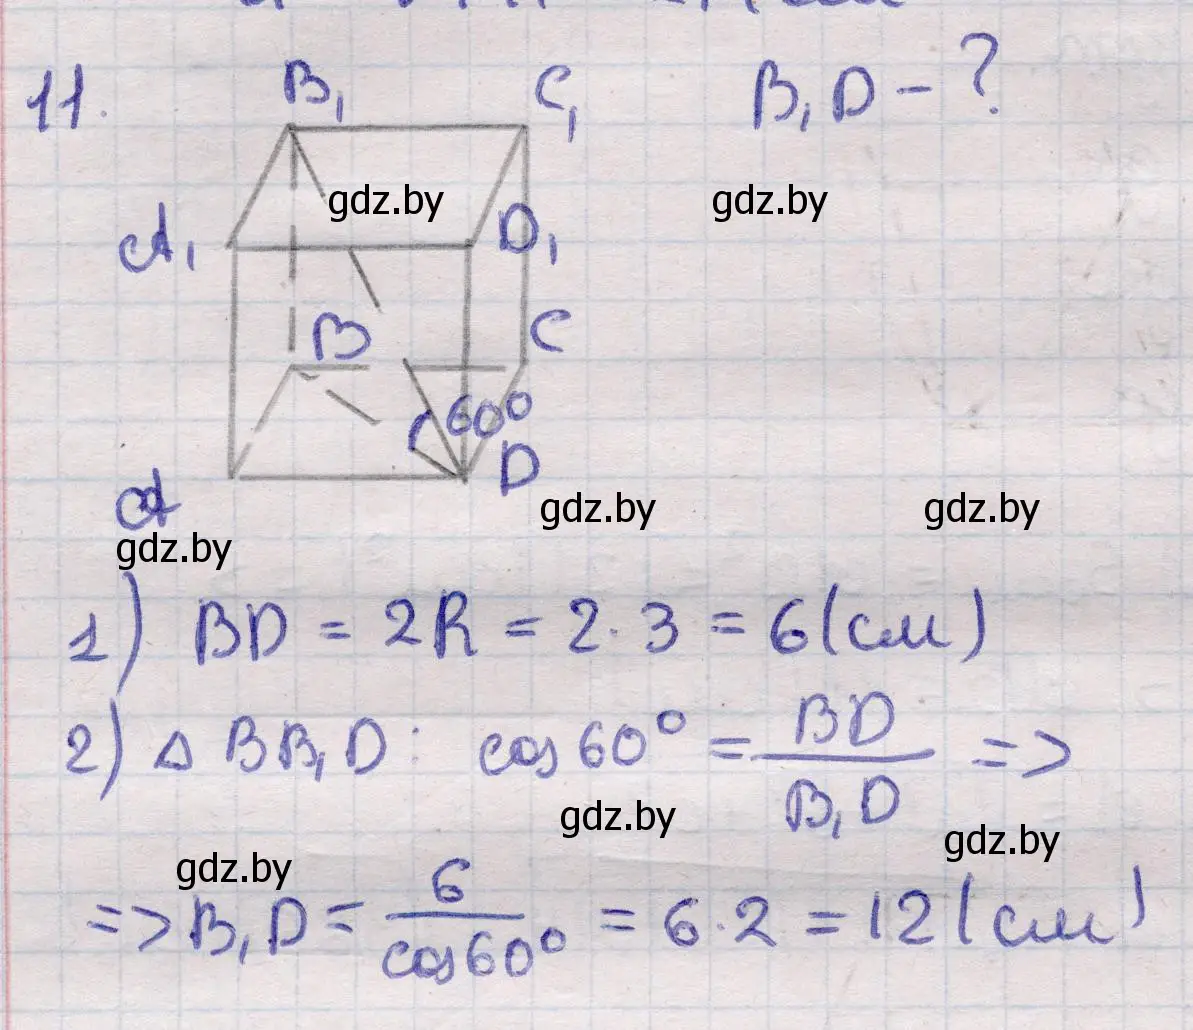 11. B₁ C₁ B₁D - ?
gdz.by gdz.by
A₁ D₁
B C
60°
A D
gdz.by gdz.by
gdz.by
1) BD = 2R = 2·3 = 6(см)
2) △ BB₁D: cos60° = BD / B₁D =>
gdz.by
gdz.by gdz.by
=> B₁D = 6 / cos60° = 6·2 = 12(см)